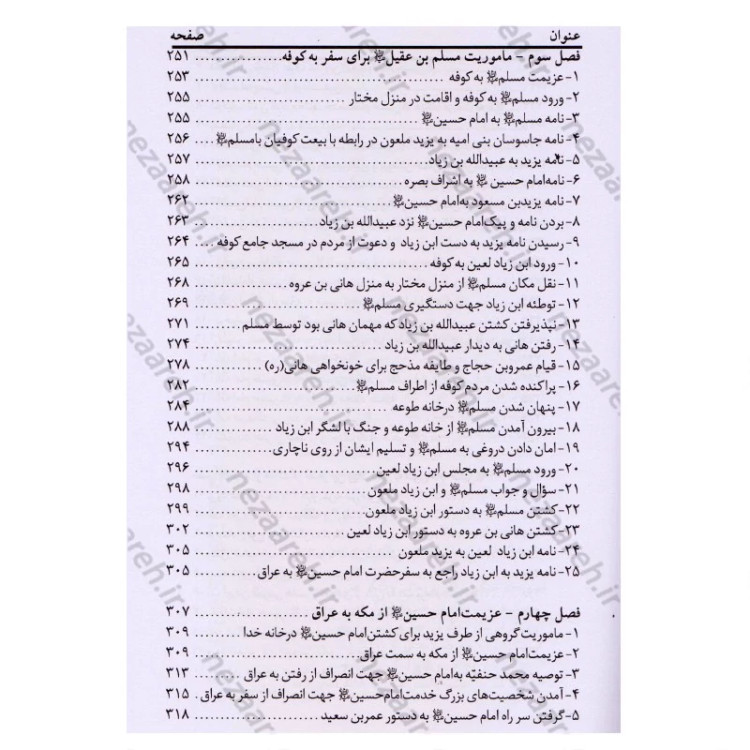 عنوان صفحه
فصل سوم - ماموریت مسلم بن عقیل﵇ برای سفر به کوفه.................. ۲۵۱
۱- عزیمت مسلم﵇ به کوفه .................. ۲۵۳
۲- ورود مسلم﵇ به کوفه و اقامت در منزل مختار .................. ۲۵۵
۳- نامه مسلم﵇ به امام حسین﵇ .................. ۲۵۵
۴- نامه جاسوسان بنی امیه به یزید ملعون در رابطه با بیعت کوفیان بامسلم﵇ .... ۲۵۶
۵- نامه یزید به عبیدالله بن زیاد .................. ۲۵۷
۶- نامه‌امام حسین ﵇ به اشراف بصره .................. ۲۵۸
۷- نامه یزیدبن مسعود به‌امام حسین﵇ .................. ۲۶۲
۸- بردن نامه و پیک‌امام حسین﵇ نزد عبیدالله بن زیاد .................. ۲۶۳
۹- رسیدن نامه یزید به دست ابن زیاد و دعوت از مردم در مسجد جامع کوفه .... ۲۶۴
۱۰- ورود ابن زیاد لعین به کوفه .................. ۲۶۵
۱۱- نقل مکان مسلم﵇ از منزل مختار به منزل هانی بن عروه .................. ۲۶۸
۱۲- توطئه ابن زیاد جهت دستگیری مسلم﵇ .................. ۲۶۹
۱۳- نپذیرفتن کشتن عبیدالله بن زیاد که مهمان هانی بود توسط مسلم .......... ۲۷۱
۱۴- رفتن هانی به دیدار عبیدالله بن زیاد .................. ۲۷۴
۱۵- قیام عمروبن حجاج و طایفه مذحج برای خونخواهی هانی(ره) .......... ۲۷۸
۱۶- پراکنده شدن مردم کوفه از اطراف مسلم﵇ .................. ۲۸۲
۱۷- پنهان شدن مسلم﵇ درخانه طوعه .................. ۲۸۴
۱۸- بیرون آمدن مسلم﵇ از خانه طوعه و جنگ با لشگر ابن زیاد .......... ۲۸۸
۱۹- امان دادن دروغی به مسلم﵇ و تسلیم ایشان از روی ناچاری .......... ۲۹۴
۲۰- ورود مسلم﵇ به مجلس ابن زیاد لعین .................. ۲۹۶
۲۱- سؤال و جواب مسلم﵇ و ابن زیاد ملعون .................. ۲۹۸
۲۲- کشتن مسلم﵇ به دستور ابن زیاد ملعون .................. ۲۹۹
۲۳- کشتن هانی بن عروه به دستور ابن زیاد لعین .................. ۳۰۲
۲۴- نامه ابن زیاد لعین به یزید ملعون .................. ۳۰۵
۲۵- نامه یزید به ابن زیاد راجع به سفرحضرت امام حسین﵇ به عراق .......... ۳۰۵
فصل چهارم - عزیمت‌امام حسین﵇ از مکه به عراق .................. ۳۰۷
۱- ماموریت گروهی از طرف یزید برای کشتن‌امام حسین﵇ درخانه خدا .......... ۳۰۹
۲- عزیمت‌امام حسین﵇ از مکه به سمت عراق .................. ۳۰۹
۳- توصیه محمد حنفیّه به‌امام حسین﵇ جهت انصراف از رفتن به عراق .......... ۳۱۳
۴- آمدن شخصیت‌های بزرگ خدمت‌امام‌حسین﵇ جهت انصراف از سفر به عراق . ۳۱۵
۵- گرفتن سر راه امام حسین﵇ به دستور عمربن سعید .................. ۳۱۸
nezaareh.ir